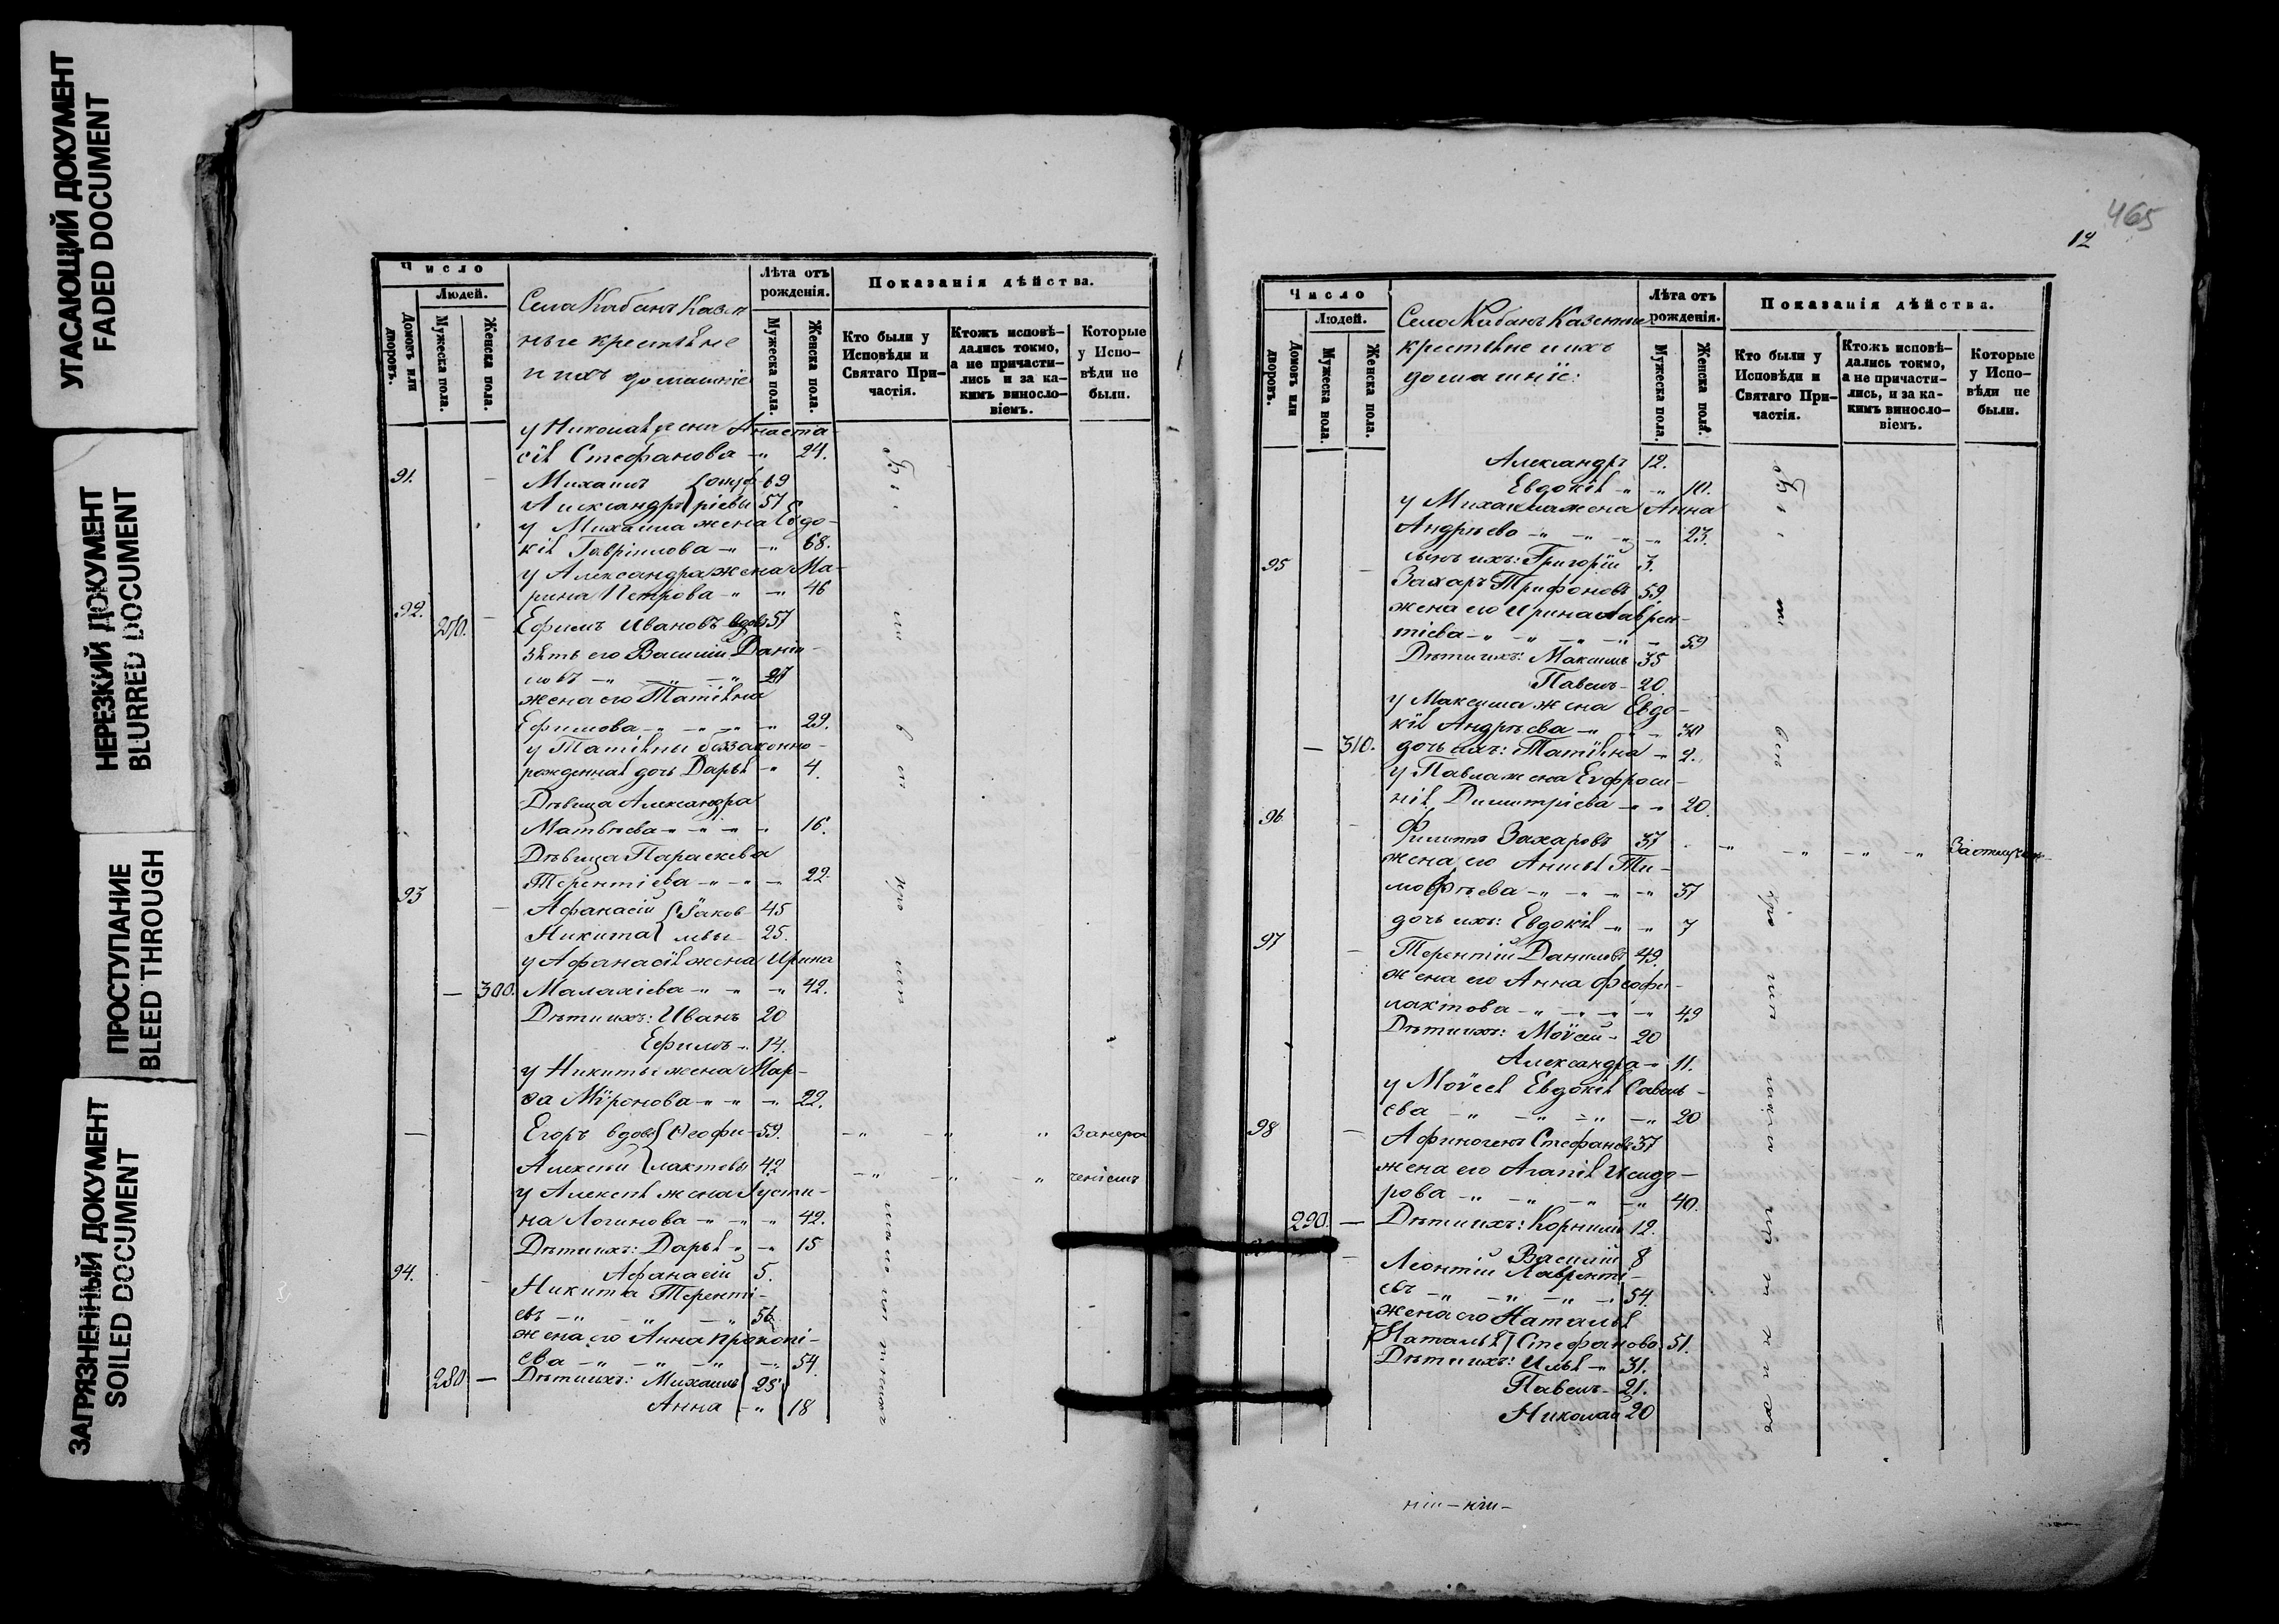 УГАСАЮЩИЙ ДОКУМЕНТ
FADED DOCUMENT
НЕРЕЗКИЙ ДОКУМЕНТ
BLURRED DOCUMENT
ПРОСТУПАНИЕ
BLEED THROUGH
ЗАГРЯЗНЕННЫЙ ДОКУМЕНТ
SOILED DOCUMENT
Число
Людей.
Домовъ или дворовъ.
Мужеска пола.
Женска пола.
Села Кабанъ Казен
ные крестьяне
и ихъ домашніе
Лѣта отъ рожденія.
Мужеска пола.
Женска пола.
Показанія дѣйства.
Кто были у Исповѣди и Святаго Причастія.
Ктожъ исповѣдались токмо, а не причастились и за какимъ винословіемъ.
Которые у Исповѣди не были.
у Николая жена Анаста-
сія Стефанова 24.
91. Михаилъ 69
Александръ 57
у Михаила жена Евдо-
кія Гавріилова 68.
у Александра жена Ма-
рина Петрова 46
92. 270. Ефимъ Ивановъ вдовъ 57
зять его Василій Дани-
ловъ 27
жена его Татіяна
Ефимова 29.
у Татіяны беззаконно-
рожденная дочь Дарья 4.
Дѣвица Александра
Матвѣева 16.
Дѣвица Параскева
Терентіева 22.
93 Афанасій Іаков- 45
Никита левы 25.
у Афанасія жена Ирина
300. Малахіева 42.
Дѣти ихъ: Иванъ 20
Ефимъ 14.
у Никиты жена Мар-
ѳа Мѵронова 22.
Егоръ вдовъ Ѳеофи- 59. За нера
Алексѣй лактовы 42 ченіемъ
у Алексѣя жена Іусти-
на Логинова 42.
Дѣти ихъ: Дарья 15
Афанасій 5.
94. Никита Теренті-
евъ 56
жена его Анна Прокопі-
ева 54.
280 Дѣти ихъ: Михаилъ 25
Анна 18
465
12
Число
Людей.
Домовъ или дворовъ.
Мужеска пола.
Женска пола.
Села Кабанъ Казенные
крестьяне и ихъ
домашніе:
Лѣта отъ рожденія.
Мужеска пола.
Женска пола.
Показанія дѣйства.
Кто были у Исповѣди и Святаго Причастія.
Ктожъ исповѣдались токмо, а не причастились, и за какимъ винословіемъ.
Которые у Исповѣди не были.
Александръ 12.
Евдокія 10.
у Михаила жена Анна
Андрѣева 23.
сынъ ихъ: Григорій 3.
95 Захаръ Трифоновъ 59.
жена его Ирина Лаврен-
тіева 59
Дѣти ихъ: Максимъ 35
Павелъ 20.
у Максима жена Евдо-
кія Андрѣева 30
310. дочь ихъ: Татіяна 2.
у Павла жена Евфроси-
нія Димитріева 20.
96 Филиппъ Захаровъ 37
жена его Анисья Ти-
моѳѣева 37
дочь ихъ: Евдокія 7
97 Терентій Даниловъ 49.
жена его Анна Феофи-
лактова 49
Дѣти ихъ: Моѵсей 20
Александра 11.
у Моѵсея Евдокія Савель-
ева 20
98 Афиногенъ Стефановъ 37
жена его Агапія Исидо-
рова 40.
290. Дѣти ихъ: Корнилъ 12.
Василій 8
Леонтій Лавренті-
евъ 54.
жена его Наталья
Наталья Стефанова 51.
Дѣти ихъ: Илья 31.
Павелъ 21.
Николай 20